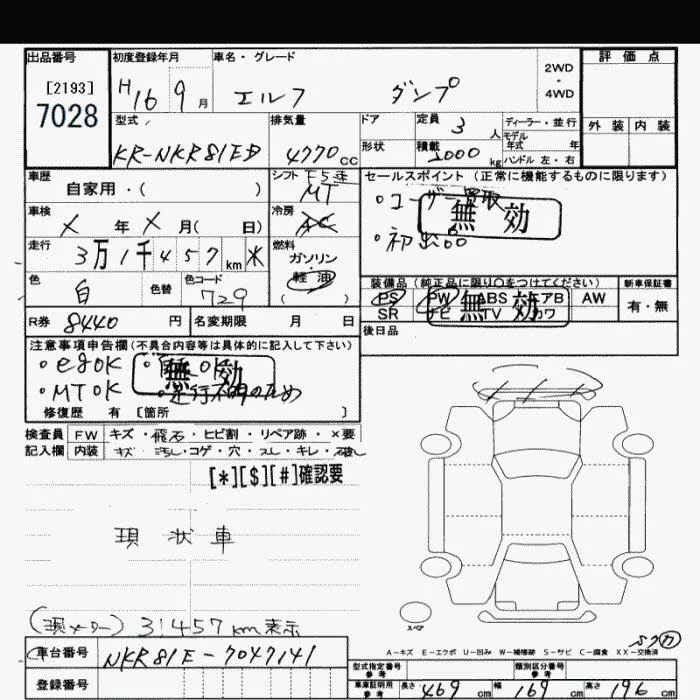 出品番号 初度登録年月 車名・グレード 評価点
[2193]
7028
H16 9月 エルフ ダンプ
2WD
・
4WD
型式 排気量 ドア 定員 3人 ディーラー・並行
モデル
年式 年
外装 内装
KR-NKR81ED 4770cc 形状 積載 kg ハンドル 左・右
車歴 自家用・( ) シフト F5速 MT セールスポイント(正常に機能するものに限ります)
・ユーザー買取
無効
・初出品
車検 X年X月( 日) 冷房 AC
走行 3万1千457km* 燃料 ガソリン・軽油 ( )
色 白 色替 色コード 729
装備品(純正品に限り○をつけてください) 新車保証書
PS PW ABS エアB AW 有・無
SR ナビ TV カワ
無効
R券 8440円 名変期限 月 日 後日品
注意事項申告欄(不具合内容等は具体的に記入して下さい)
・egOK
無効
・MTOK ・走行不明のため
修復歴 有 [箇所 ]
検査員 FW キズ・飛石・ヒビ割・リペア跡・×要
記入欄 内装 キズ・汚し・コゲ・穴・スレ・キレ・破レ
[*][$][#]確認要
現状車
(現メーター) 31457km表示
スペア
A-キズ E-エクボ U-凹み W-補修跡 S-サビ C-腐食 XX-交換済
車台番号 NKR81E-7047141
登録番号
型式指定番号 参考 類別区分番号 参考
車庫証明用 参考 長さ 469cm 幅 169cm 高さ 196cm